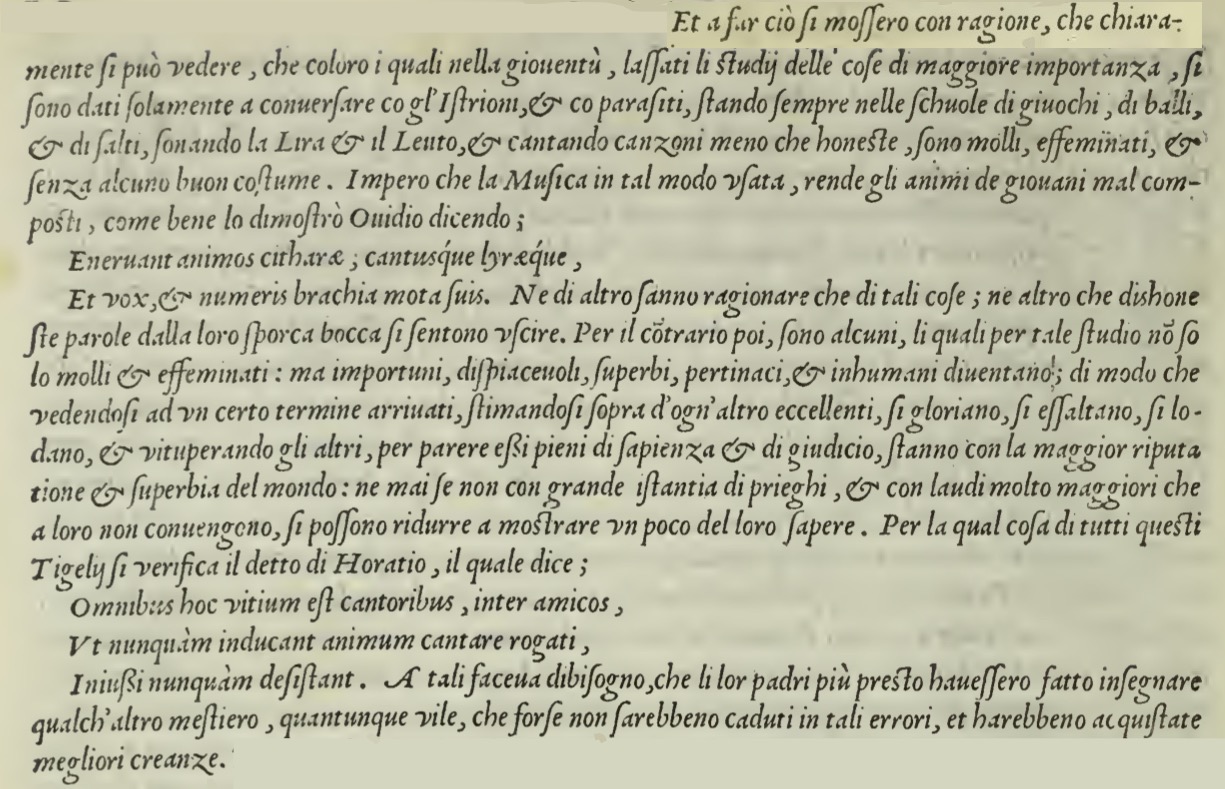 Et a far ciò ſi moſſero con ragione, che chiara-
mente ſi può vedere, che coloro i quali nella giouentù, laſſati li ſtudij delle coſe di maggiore importanza, ſi
ſono dati ſolamente a conuerſare co gl'Iſtrioni, & co paraſiti, ſtando ſempre nelle ſchuole di giuochi, di balli,
& di ſalti, ſonando la Lira & il Leuto, & cantando canzoni meno che honeſte, ſono molli, effeminati, &
ſenza alcuno buon coſtume. Impero che la Muſica in tal modo vſata, rende gli animi de giouani mal com-
poſti, come bene lo dimoſtrò Ouidio dicendo;
Eneruant animos citharæ; cantusq́ue lyræq́ue,
Et vox, & numeris brachia mota ſuis. Ne di altro ſanno ragionare che di tali coſe; ne altro che dishone
ſte parole dalla loro ſporca bocca ſi ſentono vſcire. Per il cōtrario poi, ſono alcuni, li quali per tale ſtudio nō ſo
lo molli & effeminati: ma importuni, diſpiaceuoli, ſuperbi, pertinaci, & inhumani diuentano; di modo che
vedendoſi ad vn certo termine arriuati, ſtimandoſi ſopra d'ogn'altro eccellenti, ſi gloriano, ſi eſſaltano, ſi lo-
dano, & vituperando gli altri, per parere eßi pieni di ſapienza & di giudicio, ſtanno con la maggior riputa
tione & ſuperbia del mondo: ne mai ſe non con grande iſtantia di prieghi, & con laudi molto maggiori che
a loro non conuengono, ſi poſſono ridurre a moſtrare vn poco del loro ſapere. Per la qual coſa di tutti queſti
Tigelij ſi verifica il detto di Horatio, il quale dice;
Omnibus hoc vitium eſt cantoribus, inter amicos,
Vt nunquàm inducant animum cantare rogati,
Iniußi nunquàm deſiſtant. A tali faceua dibiſogno, che li lor padri più preſto haueſſero fatto inſegnare
qualch'altro meſtiero, quantunque vile, che forſe non ſarebbeno caduti in tali errori, et harebbeno acquiſtate
megliori creanze.